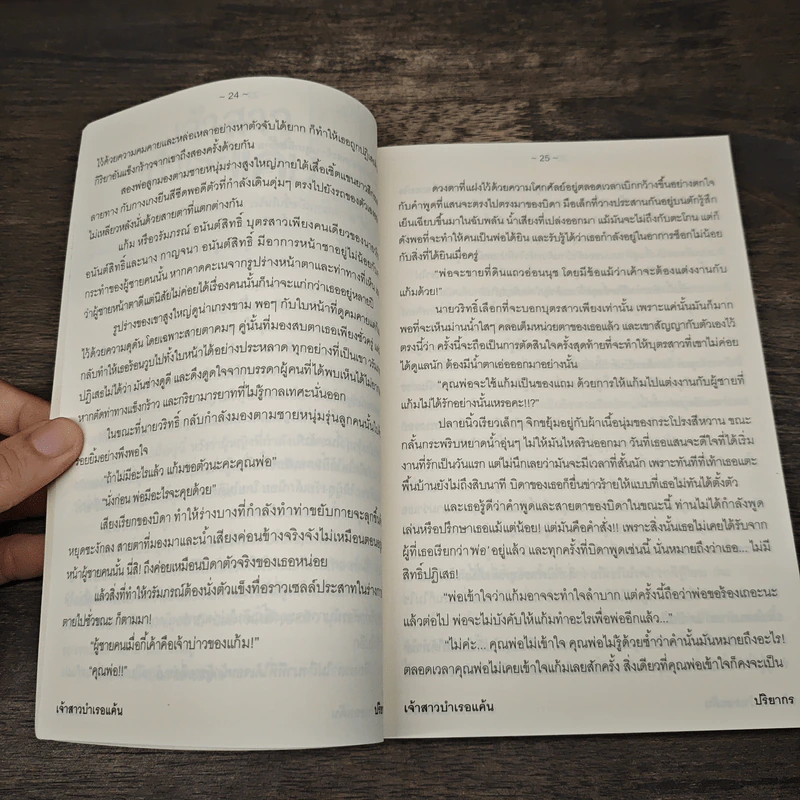 – 24 –
ไว้ด้วยความคมคายและหล่อเหลาอย่างหาตัวจับได้ยาก ก็ทำให้เธอถูกปฏิเสธ
กิริยาอันแข็งกร้าวจากเขาถึงสองครั้งด้วยกัน
สองพ่อลูกมองตามชายหนุ่มร่างสูงใหญ่ภายใต้เสื้อเชิ้ตแขนยาวสี
ลายทาง กับกางเกงยีนสีซีดพอดีตัวที่กำลังเดินดุ่มๆ ตรงไปยังรถของตัวเอง
ไม่เหลียวหลังนั้นด้วยสายตาที่แตกต่างกัน
แก้ม หรือวรัมภรณ์ อนันต์สิทธิ์ บุตรสาวเพียงคนเดียวของนาย
อนันต์สิทธิ์และนาง กาญจนา อนันต์สิทธิ์ มีอาการหน้าชาอยู่ไม่น้อย
กระทำของผู้ชายคนนั้น หากคาดคะเนจากรูปร่างหน้าตาและท่าทางที่เห็น
ว่าผู้ชายหน้าตาดีแต่นิสัยไม่ค่อยได้เรื่องคนนั้นก็น่าจะแก่กว่าเธออยู่หลายปี
รูปร่างของเขาสูงใหญ่ดูน่าเกรงขาม พอๆ กับใบหน้าที่ดูคมคาย
ไว้ด้วยความดุดัน โดยเฉพาะสายตาคมๆ คู่นั้นที่มองสบตาเธอเพียงชั่วครู่
กลับทำให้เธอร้อนวูบไปทั้งใบหน้าได้อย่างประหลาด ทุกอย่างที่เป็นเขา
ปฏิเสธไม่ได้ว่า มันช่างดูดี และดึงดูดใจจากบรรดาผู้คนที่ได้พบเห็นได้ไม่
หากตัดท่าทางแข็งกร้าว และกริยามารยาทที่ไม่รู้กาลเทศะนั่นออก
ในขณะที่นายวริทธิ์ กลับกำลังมองตามชายหนุ่มรุ่นลูกคนนั้น
รอยยิ้มอย่างพึงพอใจ
“ถ้าไม่มีอะไรแล้ว แก้มขอตัวนะคะคุณพ่อ”
“นั่งก่อน พ่อมีอะไรจะคุยด้วย”
เสียงเรียกของบิดา ทำให้ร่างบางที่กำลังทำท่าขยับกายจะลุกขึ้น
หยุดชะงักลง สายตาที่มองมาและน้ำเสียงค่อนข้างจริงจังไม่เหมือนตอน
หน้าผู้ชายคนนั้น นี่สิ! ถึงค่อยเหมือนบิดาตัวจริงของเธอหน่อย
แล้วสิ่งที่ทำให้วรัมภรณ์ต้องนั่งตัวแข็งทื่อราวเซลล์ประสาทในร่าง
ตายไปชั่วขณะ ก็ตามมา!
“ผู้ชายคนเมื่อกี้เค้าคือเจ้าบ่าวของแก้ม!”
“คุณพ่อ!!”
เจ้าสาวบำเรอแค้น
– 25 –
ดวงตาที่แฝงไว้ด้วยความโศกศัลย์อยู่ตลอดเวลาเบิกกว้างขึ้นอย่างตกใจ
กับคำพูดที่แสนจะตรงไปตรงมาของบิดา มือเล็กที่วางประสานกันอยู่บนตักรู้สึก
เย็นเฉียบขึ้นมาในฉับพลัน น้ำเสียงที่เปล่งออกมา แม้มันจะไม่ถึงกับตะโกน แต่ก็
ดังพอที่จะทำให้คนเป็นพ่อได้ยิน และรับรู้ได้ว่าเธอกำลังอยู่ในอาการช็อกไม่น้อย
กับสิ่งที่ได้ยินเมื่อครู่
“พ่อจะขายที่ดินแถวอ่อนนุช โดยมีข้อแม้ว่าเค้าจะต้องแต่งงานกับ
แก้มด้วย!”
นายวริทธิ์เลือกที่จะบอกบุตรสาวเพียงเท่านั้น เพราะแค่นั้นมันก็มาก
พอที่จะเห็นม่านน้ำใสๆ คลอเต็มหน่วยตาของเธอแล้ว และเขาสัญญากับตัวเองไว้
ตรงนี้ว่า ครั้งนี้จะถือเป็นการตัดสินใจครั้งสุดท้ายที่จะทำให้บุตรสาวที่เขาไม่ค่อย
ได้ดูแลนัก ต้องมีน้ำตาเอ่อออกมาอย่างนั้น
“คุณพ่อจะใช้แก้มเป็นของแถม ด้วยการให้แก้มไปแต่งงานกับผู้ชายที่
แก้มไม่ได้รักอย่างนั้นเหรอคะ!!?”
ปลายนิ้วเรียวเล็กๆ จิกขยุ้มอยู่กับผ้าเนื้อนุ่มของกระโปรงสีหวาน ขณะ
กลั้นกระพริบหยาดน้ำอุ่นๆ ไม่ให้มันไหลรินออกมา วันที่เธอแสนจะดีใจที่ได้เริ่ม
งานที่รักเป็นวันแรก แต่ไม่นึกเลยว่ามันจะมีเวลาที่สั้นนัก เพราะทันทีที่เท้าเธอแตะ
พื้นบ้านยังไม่ถึงสิบนาที บิดาของเธอก็ยื่นข่าวร้ายให้แบบที่เธอไม่ทันได้ตั้งตัว
และเธอรู้ดีว่าคำพูดและสายตาของบิดาในขณะนี้ ท่านไม่ได้กำลังพูด
เล่นหรือปรึกษาเธอแม้แต่น้อย! แต่มันคือคำสั่ง!! เพราะสิ่งนั้นเธอไม่เคยได้รับจาก
ผู้ที่เธอเรียกว่า‘พ่อ’อยู่แล้ว และทุกครั้งที่บิดาพูดเช่นนี้ นั่นหมายถึงว่าเธอ... ไม่มี
สิทธิ์ปฏิเสธ!
“พ่อเข้าใจว่าแก้มอาจจะทำใจลำบาก แต่ครั้งนี้ถือว่าพ่อขอร้องเถอะนะ
แล้วต่อไป พ่อจะไม่บังคับให้แก้มทำอะไรเพื่อพ่ออีกแล้ว...”
“ไม่ค่ะ... คุณพ่อไม่เข้าใจ คุณพ่อไม่รู้ด้วยซ้ำว่าคำนั้นมันหมายถึงอะไร!
ตลอดเวลาคุณพ่อไม่เคยเข้าใจแก้มเลยสักครั้ง สิ่งเดียวที่คุณพ่อเข้าใจก็คงจะเป็น
เจ้าสาวบำเรอแค้น
ปริยากร